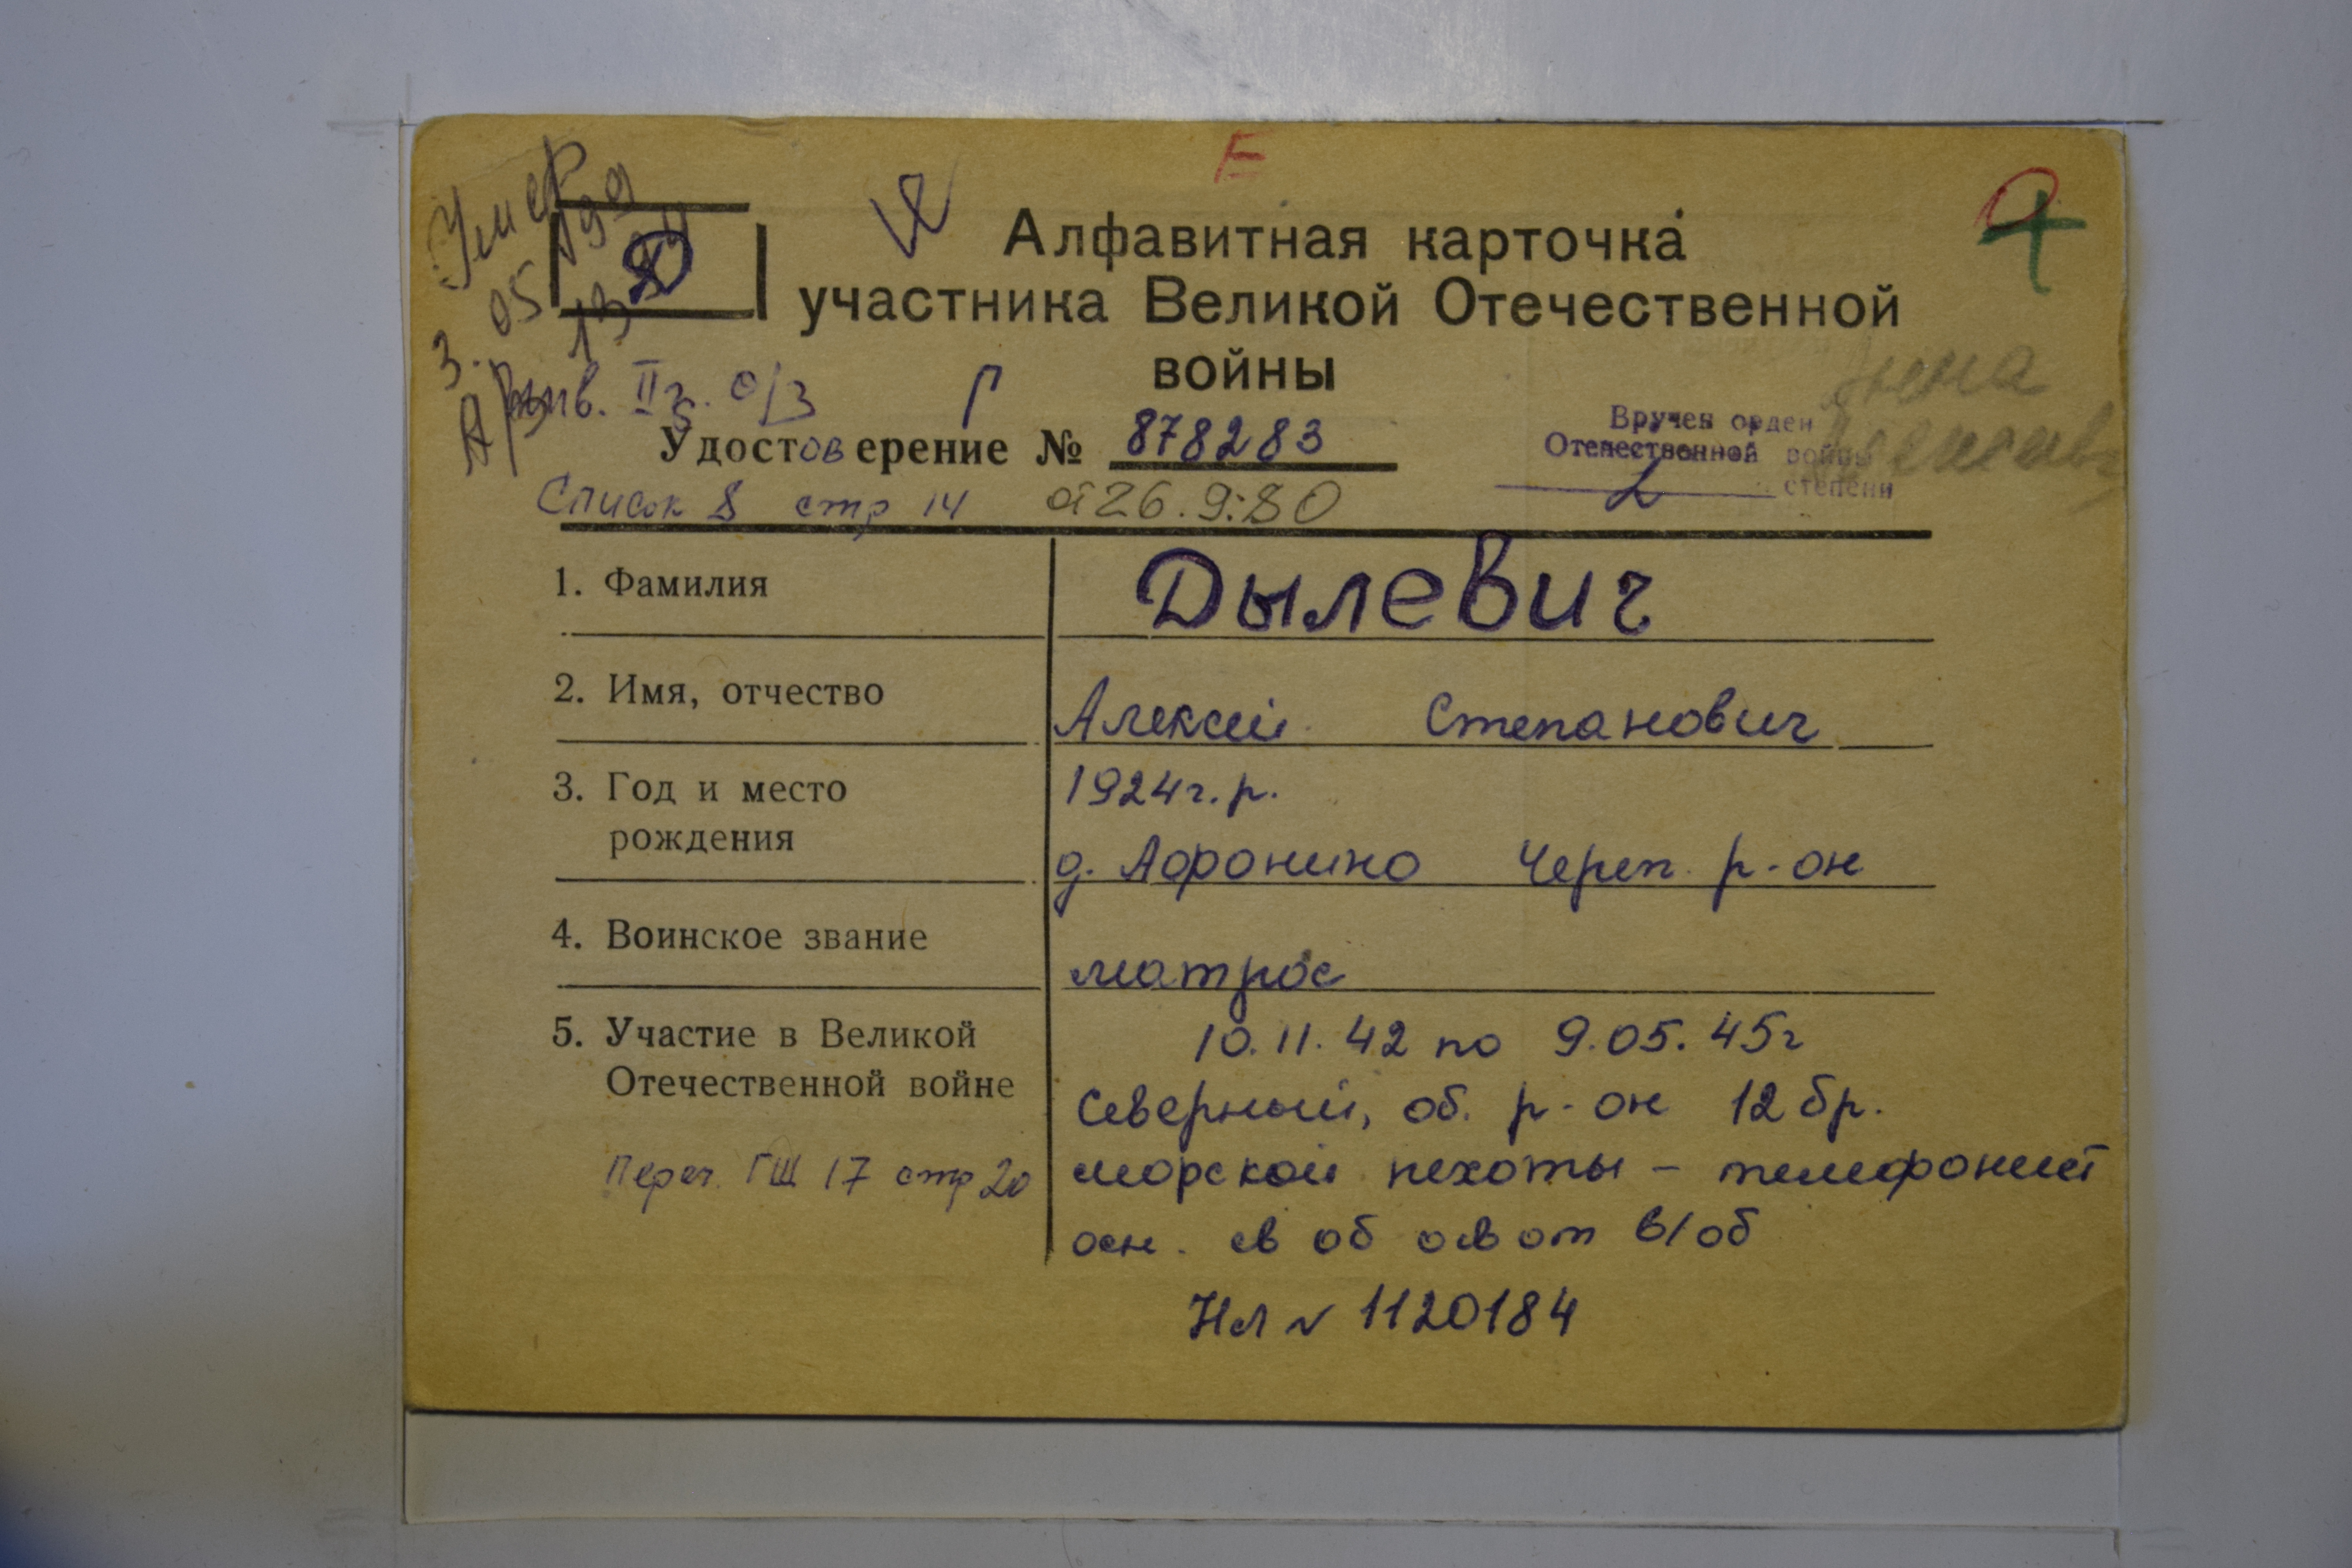 Умер
3. 05 199
Д
Е
Алфавитная карточка
участника Великой Отечественной
войны
Инв. IIг. О/З
Г
Удостоверение № 878283
Вручен орден
Отечественной войны
2 степени
Список 8 стр 14 от 26.9.80
1. Фамилия
Дылевич
2. Имя, отчество
Алексей Степанович
3. Год и место
рождения
1924г.р.
д. Афонино Череп. р-он
4. Воинское звание
матрос
5. Участие в Великой
Отечественной войне
10.11.42 по 9.05.45г
Северный, об. р-он 12 бр.
морской пехоты – телефонист
осн. св об ов от в/об
Переч. ГШ 17 стр 20
Нл № 1120184